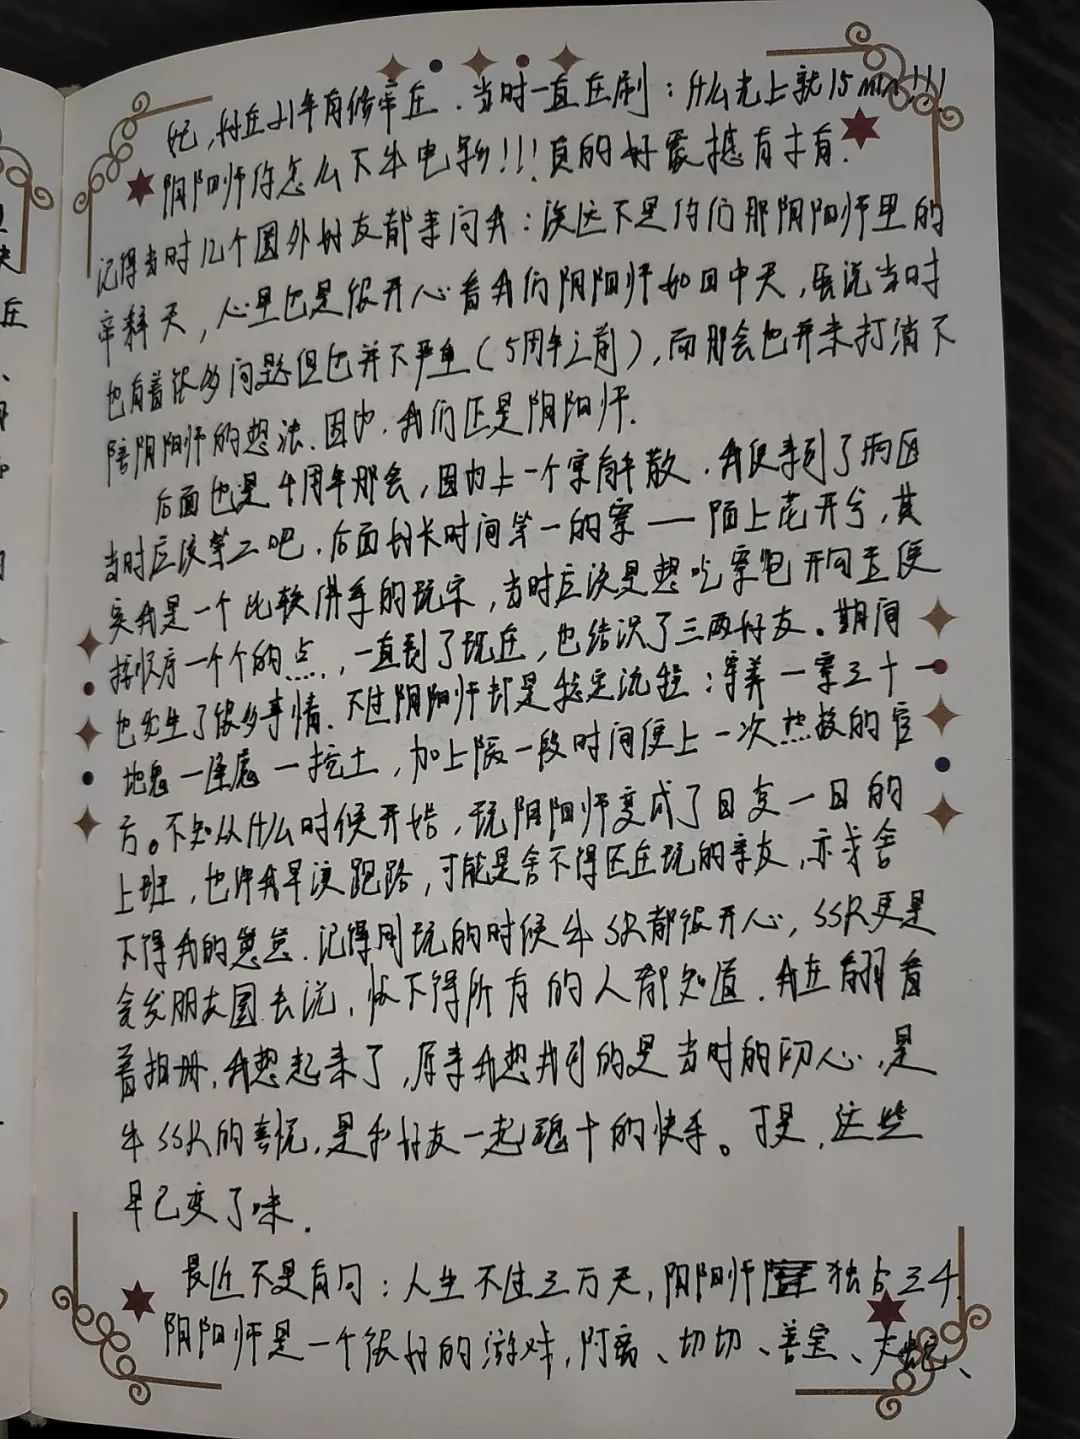 妃，好在21年有缘牢丘．当时一直在刷：什么光上就15min!!!
阴阳师你怎么不生电影!!!真的好震撼有才有．
记得当时几个圈外好友都来问我：诶这不是你们那阴阳师里的
帝释天，心里也是很开心看我们阴阳师如日中天，虽说当时
也有着很多问题但也并不严重（5周年之前），而那会也并未打消不
陪阴阳师的想法．因为．我们还是阴阳师．
后面也是4周年那会，因为上一个寮解散．我便来到了两区
当时应该第二吧．后面好长时间第一的寮——陌上花开兮，其
实我是一个比较佛系的玩家，当时应该是想吃寮包 开
按顺序一个个的点……，一直到了现在，也结识了三两好友。期间
也发生了很多事情．不过阴阳师却是稳定流程：寄养一寮三十一
地鬼一逢魔一挖土，加上隔一段时间便上一次热搜的官
方。不知从什么时候开始，玩阴阳师变成了日复一日的
上班，也许我早该跑路，可能是舍不得区在玩的亲友，亦或舍
不得我的崽崽．记得刚玩的时候牛SR都很开心，SSR更是
会发朋友圈去说，恨不得所有的人都知道．我在翻看
着相册，我想起来了，原来我想找到的是当时的初心，是
牛SSR的喜悦，是和好友一起魂十的快乐。可是，这些
早已变了味．
最近不是有句：人生不过三万天，阴阳师独占三千．
阴阳师是一个很好的游戏，阿离、切切、善宝、大蛇、